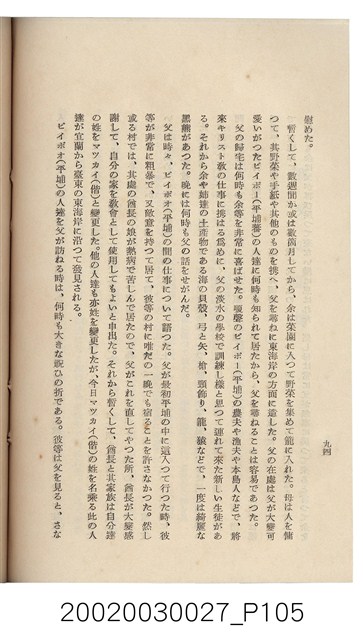 慰めた。
暫くして、數週間か或は數箇月してから、余は菜園に入つて野菜を集めて籠に入れた。母は人を傭
つて、其野菜や手紙や其他のものを携へ、父を尋ねに東海岸の方面に遣した。父の在處は父が大變可
愛いがつたピイポー(平埔蕃)の人達に何時も知られて居たから、父を尋ねることは容易であつた。
父の歸宅は何時も余等を非常に喜ばせた。ピイポー(平埔)の農夫や漁夫や本島人などで、將
來キリスト教の仕事に携はる爲めに、父の淡水の學校で訓練し樣と思つて連れて來た新しい生徒があ
る。それから余や姉達の土産物である海の貝殼、弓と矢、槍、頸飾り、籠、猿などで、一度は綺麗な
黑熊があつた。晩には何時も父の話をせがんだ。
父は時々、ピイポオ(平埔)の間の仕事について語つた。父が最初平埔の中に這入つて行つた時、彼
等が非常に粗暴で、又敵意を持つて居て、彼等の村に唯だの一晩でも宿ることを許さなかつた。然し
或る村では、其處の酋長の娘が熱病で苦しんで居たので、父がこれを直してやつた所、酋長が大變感
謝して、自分の家を敎會として使用してもよいと申出た。それから暫くして、酋長と其家族は自分達
の姓をマツカイ(偕)と變更した。他の人達も亦姓を變更したが、今日マツカイ(偕)の姓を名乘る此の人
達が宜蘭から臺東の東海岸に沿つて發見される。
ピイポオ(平埔)の人達を父が訪ねる時は、何時も大きな祝ひの折である。彼等は父を見ると、さな
九四
20020030027_P105